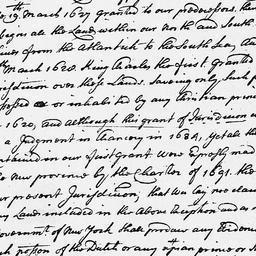 19th March 1627 granted to our predecessors. the
begins all the Lands within our North and South
Lines from the Atlantick to the South Sea, an
4th March 1628. King Charles the first granted
Jurisdiction over these Lands. saving only such p
or inhabited by any Christian prince
1620, and although this grant of Jurisdiction
a Judgment in Chancery in 1684, yet all the
contained in our first Grant were Expressly mad
new province by the Charter of 1691. the
our present Jurisdiction, that we lay no claim
any Lands included in the above Exception and as
Government of New York shall produce any Evidence
such possession of the Dutch or any other prince or St